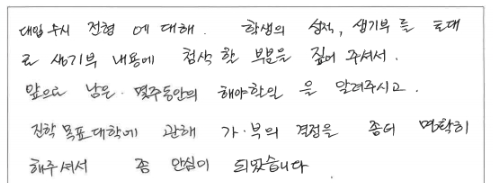 대입 수시 전형 에 대해. 학생의 성적, 생기부 를 토대
로 생기부 내용에 첨삭 할 부분을 짚어 주셔서.
앞으로 남은 몇주동안의 해야할일 을 알려주시고.
진학 목표 대학에 관해 가·부의 결정을 좀더 명확히
해주셔서 좀 안심이 되었습니다